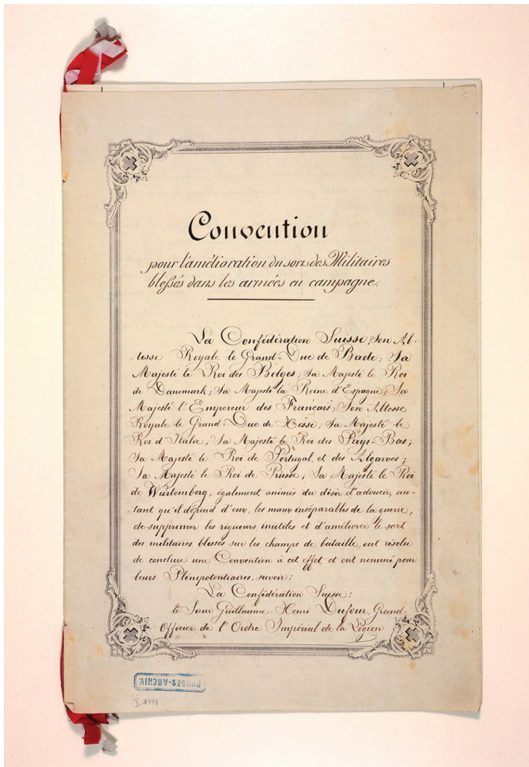 Convention
pour l'amélioration du sort des Militaires
blessés dans les armées en campagne.
La Confédération Suisse, Son Al-
tesse Royale le Grand-Duc de Bade; Sa
Majesté le Roi des Belges; Sa Majesté le Roi
de Danemark; Sa Majesté la Reine d'Espagne; Sa
Majesté l'Empereur des Français; Son Altesse
Royale le Grand Duc de Hesse; Sa Majesté le
Roi d'Italie; Sa Majesté le Roi des Pays-Bas;
Sa Majesté le Roi de Portugal et des Algarves;
Sa Majesté le Roi de Prusse; Sa Majesté le Roi
de Würtemberg, également animés du désir d'adoucir, au-
tant qu'il dépend d'eux, les maux inséparables de la guerre,
de supprimer les rigueurs inutiles et d'améliorer le sort
des militaires blessés sur les champs de bataille, ont résolu
de conclure une Convention à cet effet et ont nommé pour
leurs Plénipotentiaires, savoir:
La Confédération Suisse:
le Sieur Guillaume-Henri Dufour, Grand
Officier de l'Ordre Impérial de la Légion
BUNDES-ARCHIV